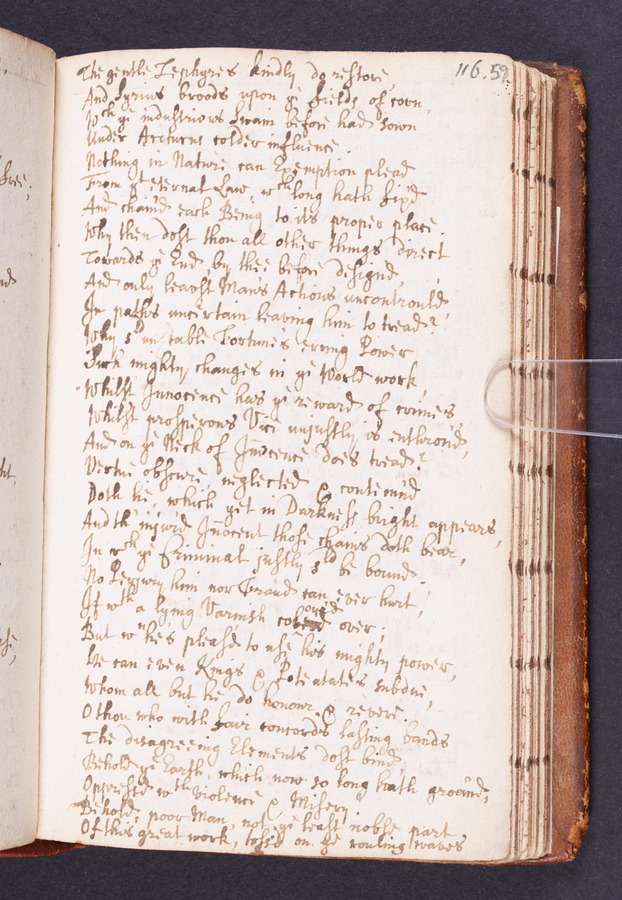 116. 59.
The gentle Zephyres kindly do restore,
And Syrius broods upon ye fields of corn,
Wch ye industrious Swain before had sown
Under Arcturus colder influence.
Nothing in Nature can Exemption plead
From yt eternal Law, wch long hath fixd
And chaind each Being to its proper place.
Why then dost thou all other things direct
Towards ye End, by thee before designd,
And only leavst Man's Actions uncontrould
In paths uncertain leaving him to tread?
Why sd unstable Fortune's erring Power
Such mighty changes in ye World work,
Whilst Innocence has ye reward of crimes,
Whilst prosperous Vice unjustly is enthrond,
And on ye Neck of Innocence does tread?
Vertue obscure, neglected & contemnd
Doth lie, which yet in Darkness bright appears,
And th' injurd Inocent those chains doth bear,
In wch ye Criminal justly sd be bound.
No Perjury him nor Fraud can ever hurt,
If wth a lying Varnish coloured over;
But wn he's pleasd to use his mighty power,
He can even Kings & Potentates subdue,
Whom all but he do honour & revere.
O thou who with fair concords lasting bands
The disagreeing Elements dost bind,
Behold ye Earth, which now so long hath groand,
Oppressd wth violence & Misery.
Behold, poor Man, not ye least noble part
Of this great work, tossd on ye rouling waves